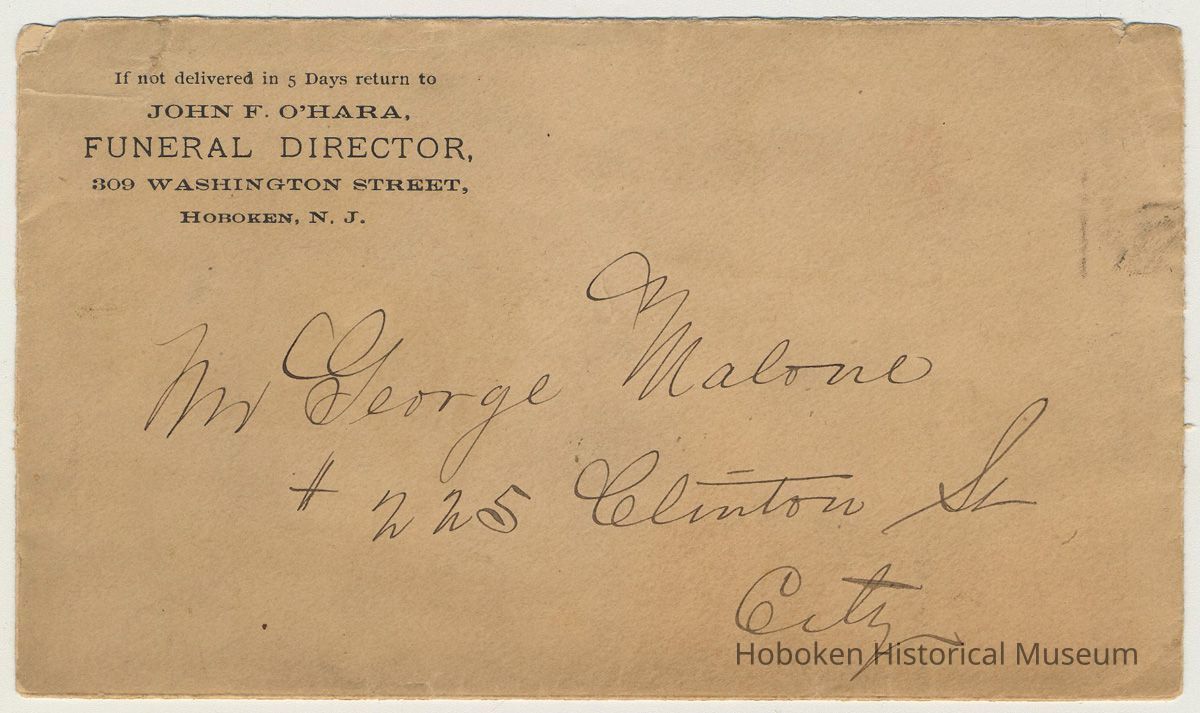 If not delivered in 5 Days return to
JOHN F. O'HARA,
FUNERAL DIRECTOR,
309 WASHINGTON STREET,
HOBOKEN, N. J.
Mr George Malone
# 225 Clinton St
City
Hoboken Historical Museum